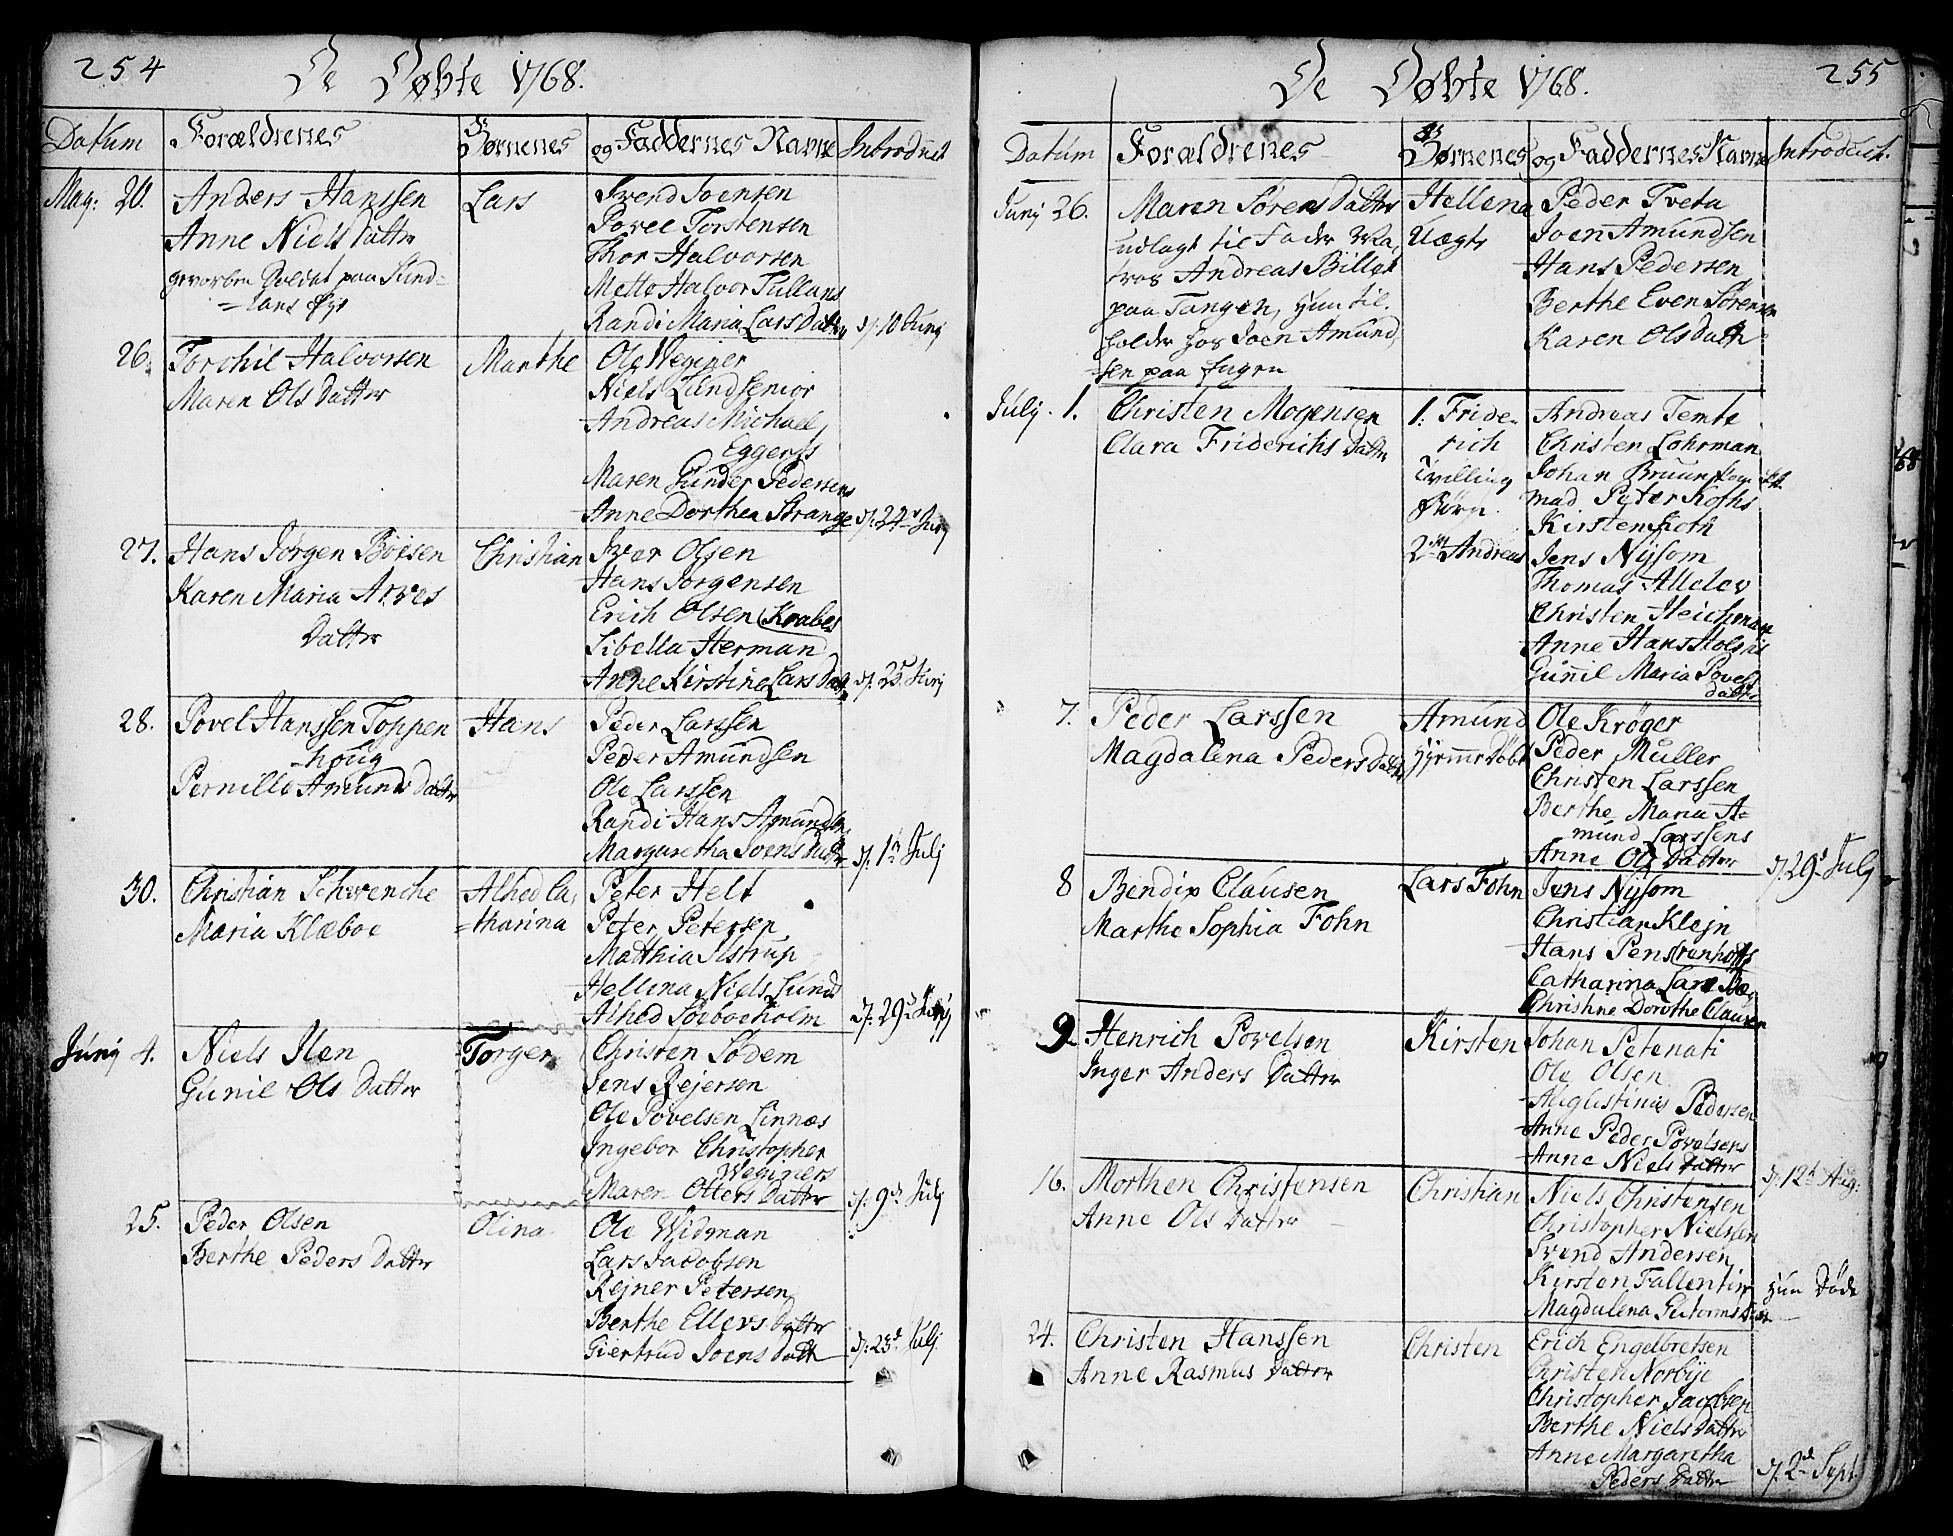 254
De Døbte 1768.
Datum Forældrenes Børnenes og Faddernes Navne Introduct
Maij: 20. Anders Hanssen Lars Svend Joensen
Anne Niels Datter Povel Torstensen
Thor Halvorsen
gevorben Soldat paa Sund-
Mette Halvor Tullans
=lans Øye
Randi Maria Lars Datter d. 10 Junij
26. Torchil Halvorsen Marthe Ole Weginer
Maren Ols Datter Niels Lund Senior
Andreas Michael
Eggerts
Maren Gunder Pedersens
Anne Dorthea Strange d. 24 Junij
27. Hans Jørgen Boisen Christian Iver Olsen
Karen Maria Arves Hans Jørgensen
Datter Erich Olsen Krabes
Sibella Herman
Anne Kirstine Lars Datter d. 25 Junij
28. Povel Hanssen Toppen Hans Peder Larssen
-houg Peder Amundsen
Pernille Amunds Datter Ole Larssen
Randi Hans Amundsens
Margaretha Joens Datter d. 1 Julij
30. Christian Schwenche Alhed Ca, Peter Helt
Maria Klæboe =tharina Peter Petersen
Matthia Ilstrup
Hellena Niels Lunds
Alhed Soeboeholm d. 29 Junij
Junij 4. Niels Ilen Torger Christen Sødem
Gunil Ols Datter Jens Rejersen
Ole Povelsen Linnæs
Ingebor Christopher
Weginers
Maren Otters Datter d. 9 Julij
25. Peder Olsen Olina Ole Widman
Berthe Peders Datter Lars Jacobsen
Rejner Petersen
Berthe Ellevs Datter
Giertrud Joens Datt d. 23 Julij
255
De Døbte 1768.
Datum Forældrenes Børnenes og Faddernes Navne Introduct.
Junij 26. Maren Sørens Datter Hellena Peder Tveta
udlagt til Fader Ma, Uægte Joen Amundsen
tros Andreas Billet Hans Pedersen
paa Tangen, hun til, Berthe Even Sørensen
holder hos Joen Amund, Karen Ols Datt
-sen paa
Julij. 1. Christen Mogensen 1. Fride- Andreas Temte
Clara Friderichs Datter rich Christen Lohrman
Tvilling Johan Bruun
Børn. Mad. Peter Koths
Kirsten Koth
2 Andreas Jens Nysom
Thomas Allelev
Christen Heichman
Anne Hans Holst
Gunnil Maria Povels
Datter
7. Peder Larssen Amund Ole Krøger
Magdalena Peders Datter Hjemmedøbt Peder Muller
Christen Larssen
Berthe Maria A-
mund Larssens
Anne Ols Datter d. 29 Julij
8 Bendix Clausen Lars Fohn Jens Nysom
Marthe Sophia Fohn Christian Klejn
Hans Pens
Catharina Lars
Christine Dorothe Clausen
9. Henrich Povelsen Kirsten Johan Petenati
Inger Anders Datter Ole Olsen
Augustinus Pedersen
Anne Peder Povelsens
Anne Niels Datter d. 12 Aug:
16. Morthen Christensen Christian Niels Christensen
Anne Ols Datter Christopher Nielsen
Svend Andersen
Kirsten Fallentin hun Døde
Magdalena
24. Christen Hanssen Christen Erich Engelbretsen
Anne Rasmus Datter Christen Norbye
Christopher Jacobsen
Berthe Niels Datter
Anne Margaretha
Peders Datter d. 2 Sept